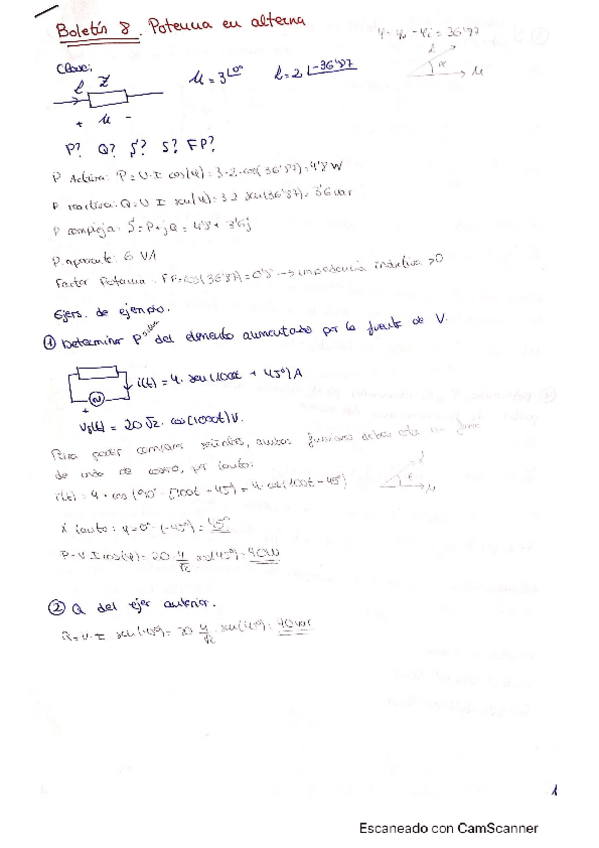 Boletín 8. Potencia en alterna
φ = φu - φi = 36'87
Clase:
i Z
u = 3∠0º  i = 2∠-36'87
+ u -
i
α u
P? Q? S? S? FP?
P Activa: P = U·I cos(φ) = 3·2·cos(36'87) = 4'8 W
P reactiva: Q = U I sen(φ) = 3·2 sen(36'87) = 3'6 var
P compleja: S = P + jQ = 4'8 + 3'6j
P. aparente: 6 VA
Factor Potencia. FP = cos(36'87) = 0'8 → impedancia inductiva >0
Ejers. de ejemplo.
① Determinar P del elemento aumentado por la fuente de V.
i(t) = 4·sen(100t + 45º) A
+
Vg(t) = 20√2·cos(100t) V.
Para poder comparar ambas funciones deben estar en
de coseno, por tanto:
i(t) = 4·cos(90º - 100t - 45º) = 4·cos(100t - 45º)
X tanto: φ = 0º - (-45º) = 45º
P = V·I cos(φ) = 20·4/√2 cos(45º) = 40W
② Q del ejer anterior.
= V·I sen(45º) = 20 4/√2·sen(45º) = 40 var
1
Escaneado con CamScanner